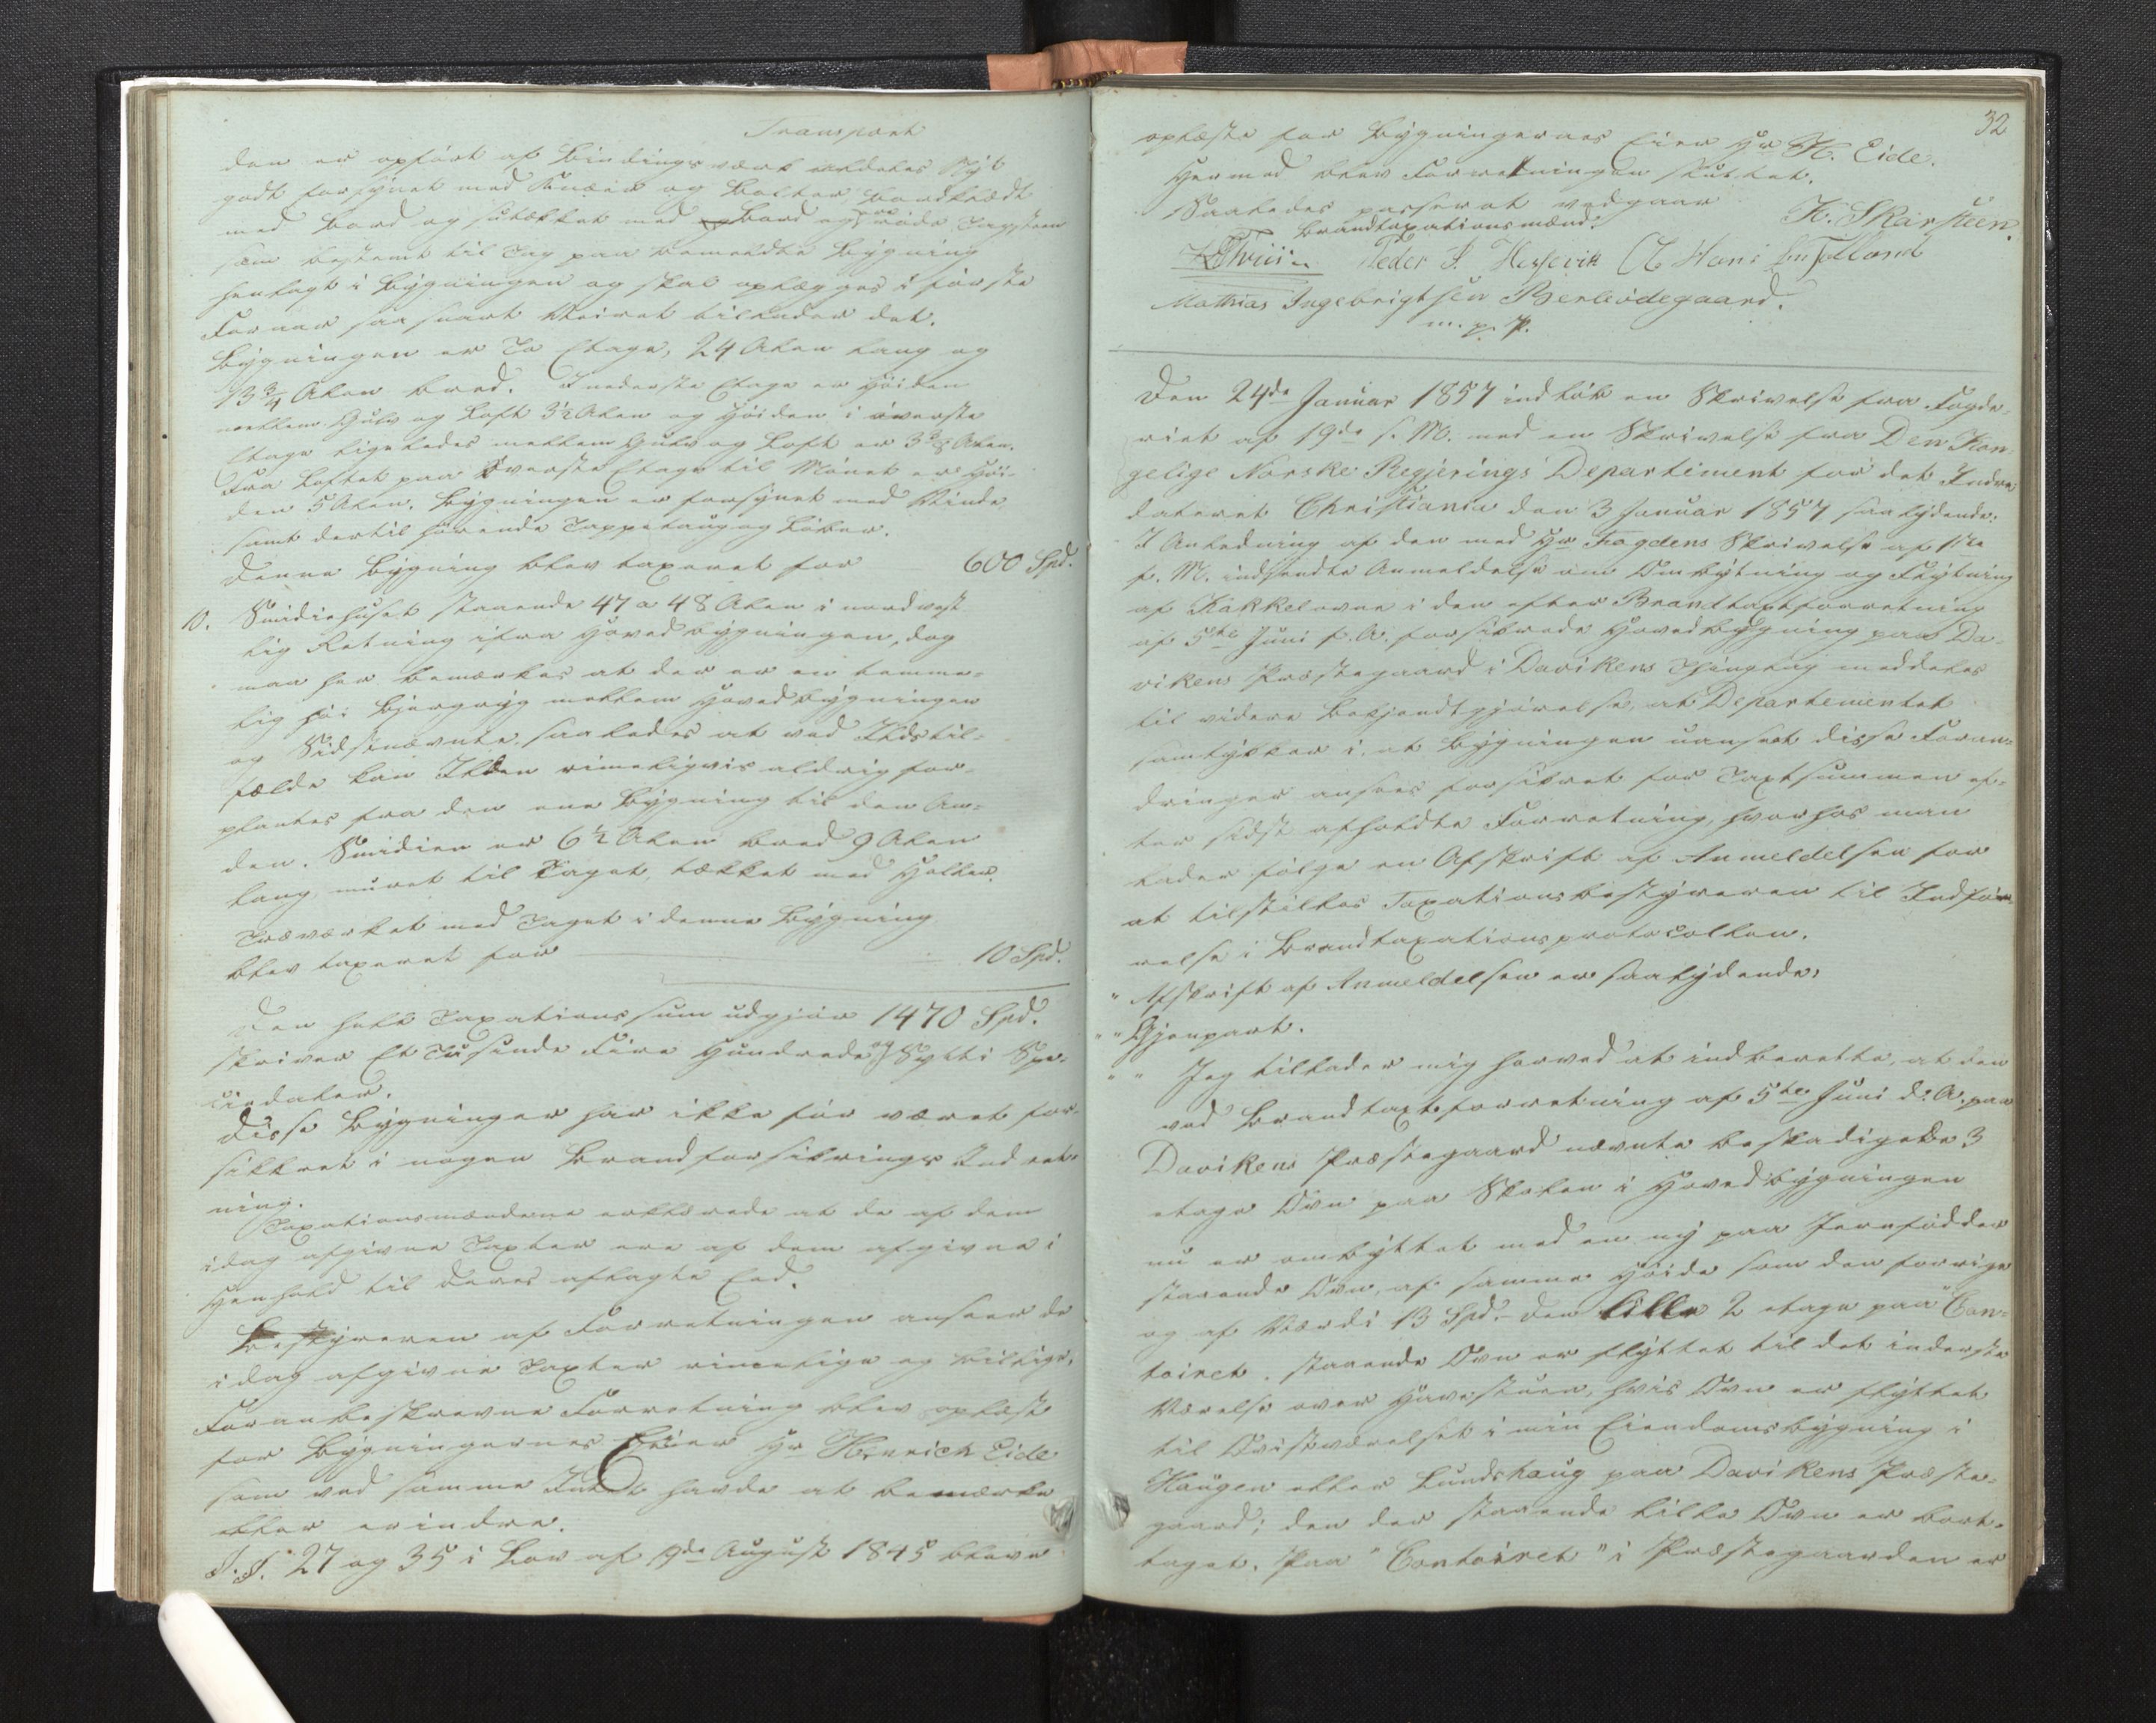 Transport
den er opført af Bindingsværk aldeles Nyt
godt forsynet med Knæer og Bolter, bordklædt
med Bord og sutækket med Bord og røde Tagsteen
som bestemt til Tag paa bemeldte Bygning
henlagt i Bygningen og skal oplægges i første
Foraar saa snart Veiret tillader det.
Bygningen er To Etage, 24 Alen lang og
13 3/4 Alen bred. I nederste Etage er Høiden
mellem Gulv og Loft 3 1/2 Alen og Høiden i øverste
Etage ligeledes mellem Gulv og Loft er 3 3/8 Alen.
Fra Loftet paa øverste Etage til Mønet er Høi-
den 5 Alen. Bygningen er forsynet med Vinde,
samt dertil hørende Tappetaug og Løber.
Denne Bygning blev taxeret for 600 Spd.
10. Smidiehuset staaende 47 a 48 Alen i nordvest
lig Retning ifra Hovedbygningen, dog
maa her bemærkes at der er en temme-
lig høi Bjergryg mellem Hovedbygningen
og Sidstnævnte, saaledes at ved Ildstil-
fælde kan Ilden rimeligvis aldrig for-
plantes fra den ene Bygning til den An-
den. Smidien er 6 1/2 Alen bred 9 Alen
lang, muret til Taget, tækket med Heller.
Træværket med Taget i denne Bygning
blev taxeret for 10 Spd.
Den hele Taxationssum udgjør 1470 Spd.
skriver Et Tusinde Fire Hundrede og Sytti Spe-
ciedaler.
Disse Bygninger har ikke før været for-
sikkret i nogen Brandforsikrings Indret-
ning.
Taxationsmændene erklærede at de af dem
idag afgivne Taxter ere af dem afgivne i
Henhold til deres aflagte Eed.
Bestyreren af Forretningen anseer de
idag afgivne Taxter rimelige og billige,
Foranbeskrevne Forretning blev oplæst
for Bygningernes Eier Hr Henrich Eide
som ved samme Intet havde at bemærke
eller erindre.
§.§. 27 og 35 i Lov af 19de August 1845 bleve
32
oplæste for Bygningernes Eier Hr H. Eide.
Hermed blev Forretningen sluttet.
Saaledes passeret vedgaar H. Skarsteen.
Brandtaxationsmænd.
Peder S. Hessevik
Mathias Ingebrigtsen Berleødegaard.
m. p. P.
Den 24de Januar 1857 indløb en Skrivelse fra Fogde-
riet af 19de s. M. med en Skrivelse fra Den Kon-
gelige Norske Regjerings Departement for det Indre
dateret Christiania den 3 Januar 1857 saalydende:
I Anledning af den med Hr Fogdens Skrivelse af 11te
f. M. indsendte Anmeldelse om Ombytning og Flytning
af Kakkelovne i den efter Brandtaxtforretning
af 5te Juni f. A. forsikrede Hovedbygning paa Da-
vikens Præstegaard i Davikens Thinglag meddeles
til videre Bekjendtgjørelse, at Departementet
samtykker i, at Bygningen uanseet disse Foran-
dringer ansees forsikret for Taxtsummen ef-
ter sidst afholdte Forretning, hvorhos man
lader følge en Afskrift af Anmeldelsen for
at tilstilles Taxationsbestyreren til Indfø-
relse i Brandtaxationsprotocollen.
" Afskrift af Anmeldelsen er saalydende:
" " Gjenpart.
" " Jeg tillader mig herved at indberette, at den
ved Brandtaxtforretning af 5te Juni d. A. paa
Davikens Præstegaard nævnte beskadigede 3
etage Ovn paa Skolen i Hovedbygningen
nu er ombyttet med en ny paa Jernfødder
staaende Ovn, af samme Høide som den forrige
og af Værdi 13 Spd. – den lille 2 etage paa "Con-
toiret" staaende Ovn er flyttet til det inderste
Værelse over Havestuen, hvis Ovn er flyttet
til Qvistværelset i min Eiendomsbygning i
Haugen eller Lundshaug paa Davikens Præste-
gaard; den der staaende lille Ovn er bort-
taget. Paa "Contoiret" i Præstegaarden er